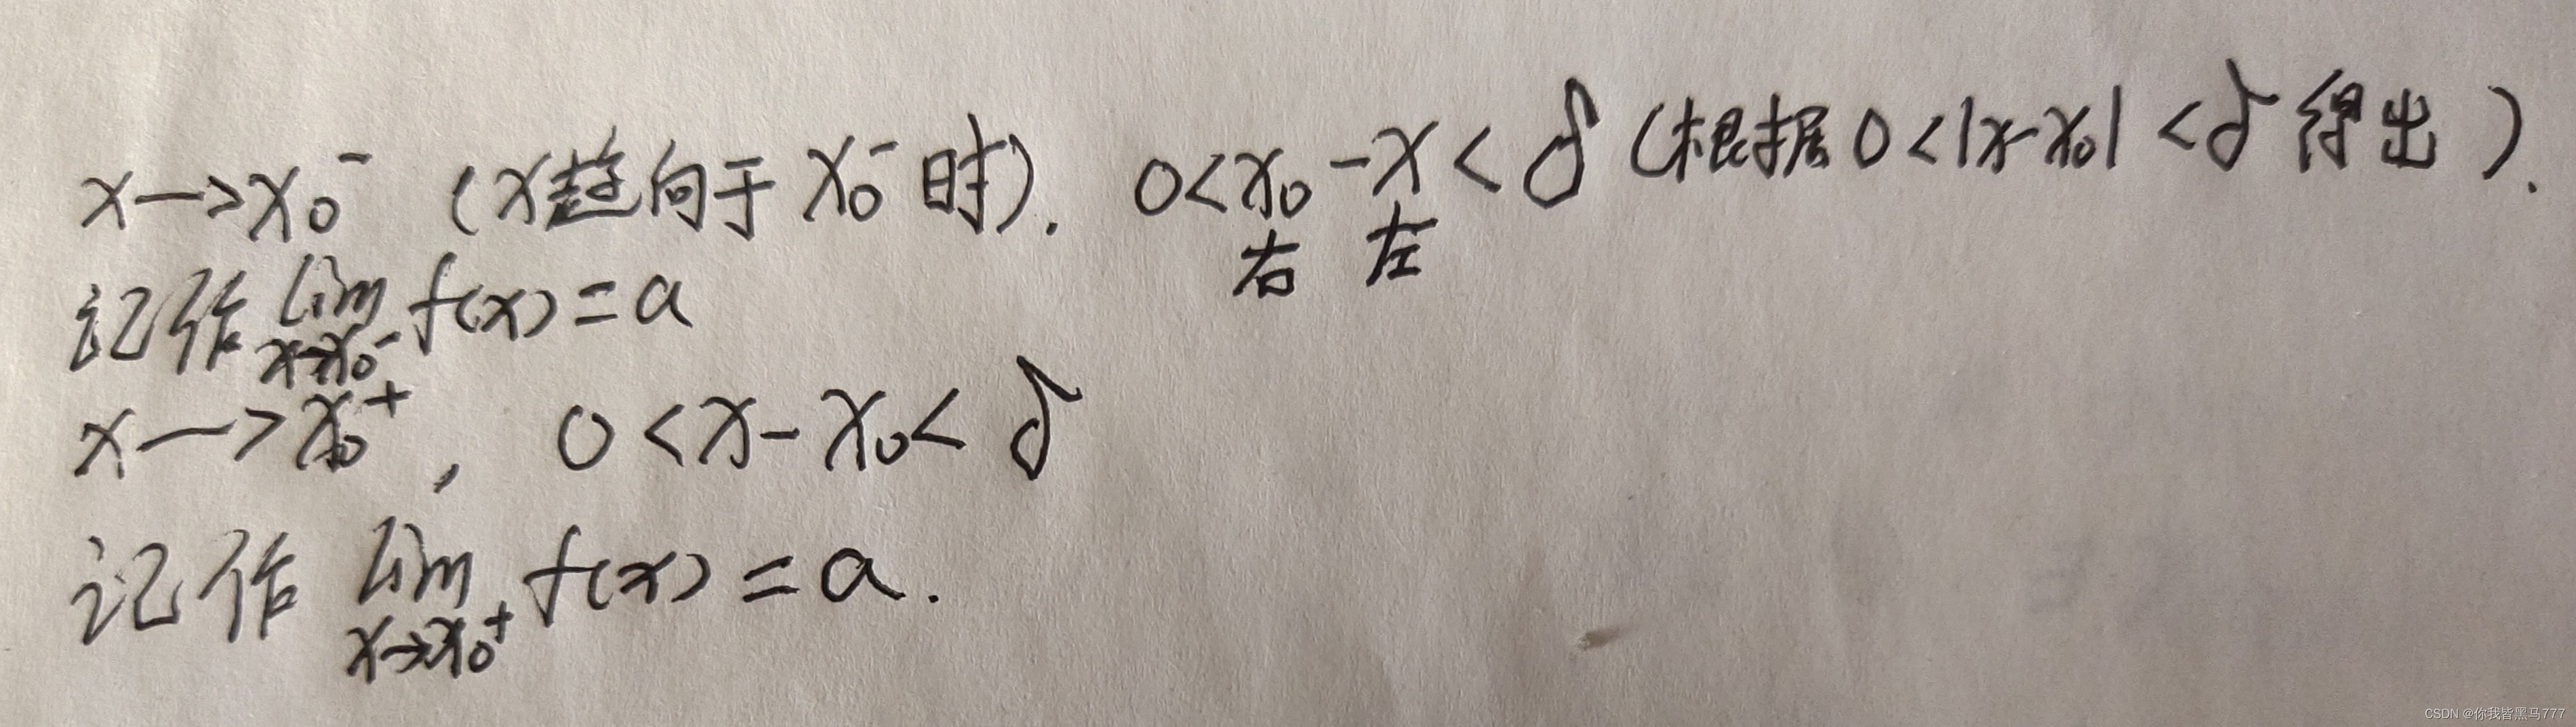 x→x₀⁻ (x趋向于x₀⁻时). 0<x₀-x<δ(根据0<|x-x₀|<δ得出).
右 左
记作lim f(x)=a
x→x₀⁻
x→x₀⁺, 0<x-x₀<δ
记作 lim f(x)=a.
x→x₀⁺
CSDN @你我皆黑马777